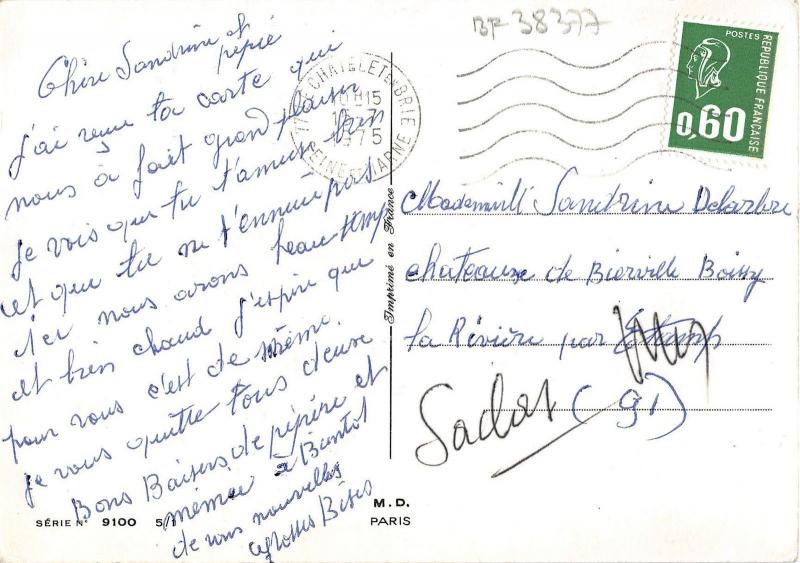 BF 38377
Chère Sandrine et
pépié
j'ai reçue ta carte qui
nous à fait grand plaisir
je vois que tu t'amuse bien
et que tu ne t'ennuie pas
ici nous avons beau temp
et bien chaud j'espère que
pour vous c'est de même.
je vous quitte tous deuse
Bons Baisers de pépère et
mémée a Biantot
de vous nouvelles
grosses Bises
SÉRIE N° 9100 5/1
M.D.
PARIS
Imprimé en France
77 CHATELET EN BRIE
10H15
7
1975
SEINE ET MARNE
POSTES
RÉPUBLIQUE FRANÇAISE
0,60
Mademoiselle Sandrine Delarbre
chateause de Bierville Boissy
la Rivière par Etamp
Saclas (91)